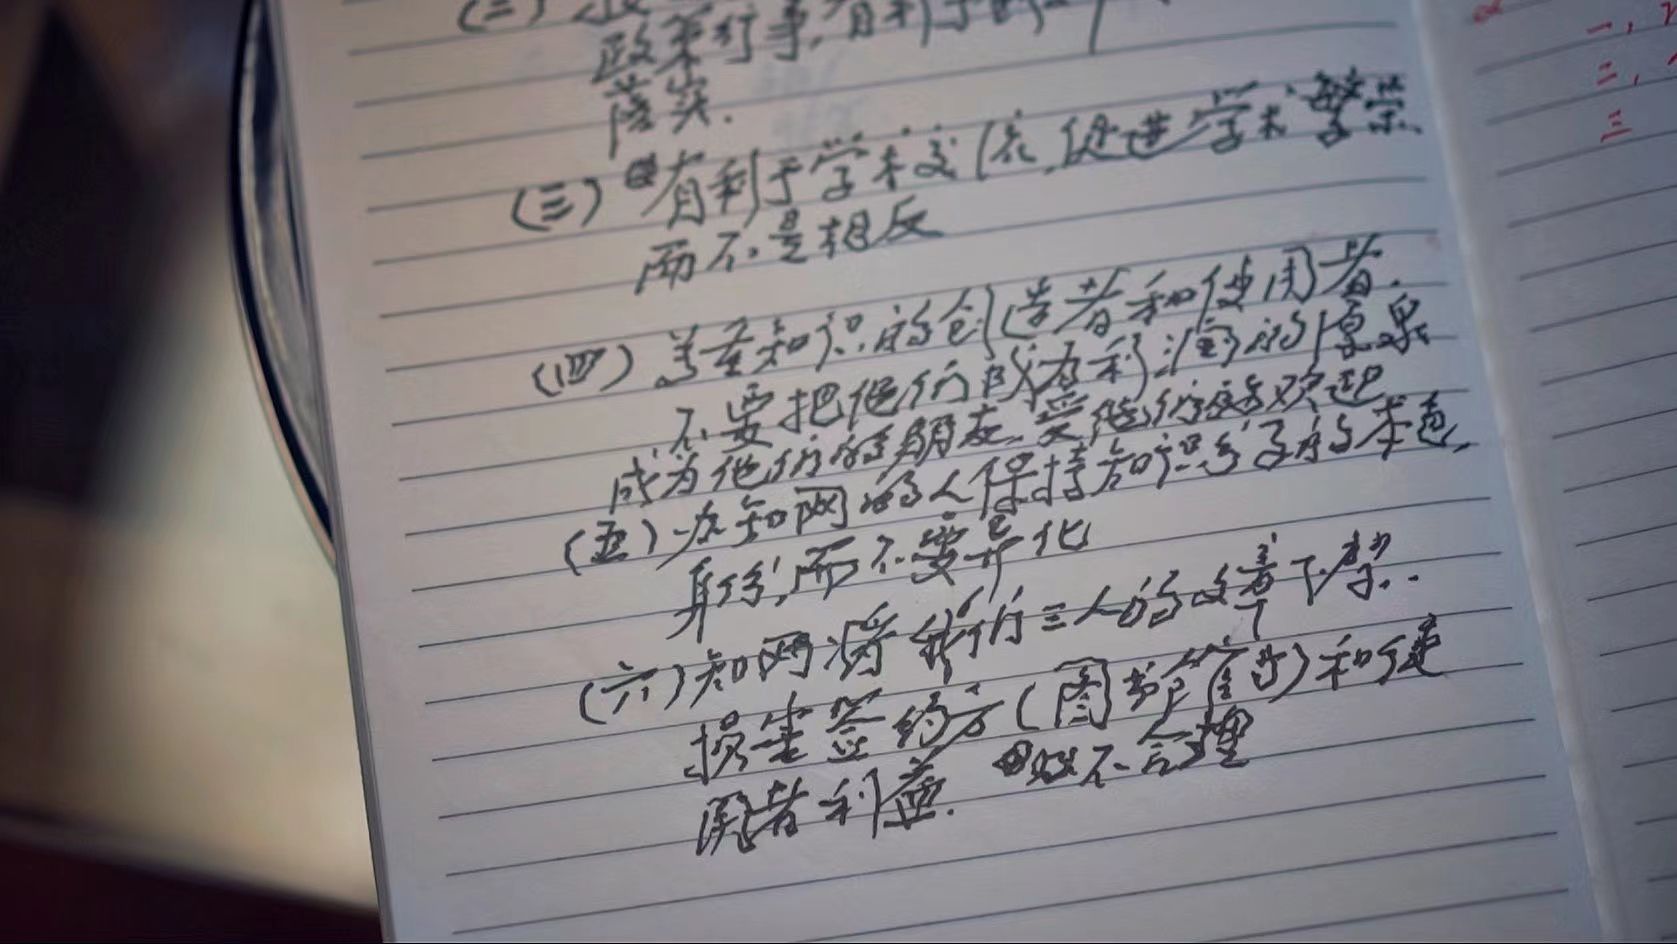 (二)
政策行事,有利于
落实.
(三)有利于学术交流,促进学术繁荣、
而不是相反
(四)尊重知识的创造者和使用者.
不要把他们成为利润的源泉
成为他们的朋友,受他们的欢迎
(五)办知网的人保持知识分子的本色,
身份,而不要异化
(六)知网将我们三人的文章下架..
损害签约方(图书馆等)和使
用者利益. 极不合理
一,
二,
三